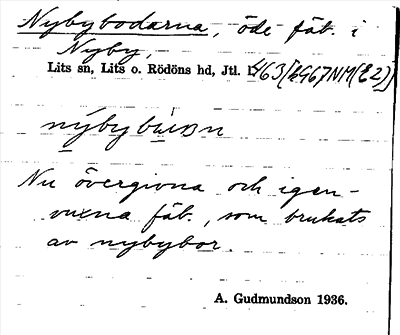 Nybybodarna, öde fäb. i
Nyby,
Lits sn, Lits o. Rödöns hd, Jtl.
nýbybùɷn
Nu övergivna och igen-
vuxna fäb., som brukats
av nybybor.
A. Gudmundson 1936.